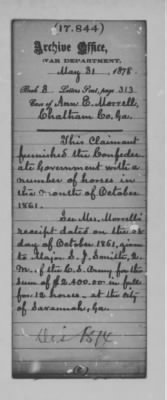 (17.844)
Archive Office,
WAR DEPARTMENT.
May 31, 1878.
Book 3 Letters Sent, page 313
Case of Ann E. Morrell,
Chatham Co. Ga.
This Claimant
furnished the Confeder-
ate Government with a
number of horses in
the month of October
1861.
See Mrs. Morrell's
receipt dated on the 28
day of October 1861, given
to Major S. J. Smith, Q.
M. of the C.S. Army for the
sum of $2,400.00 in full
for 12 horses - at the city
of Savannah, Ga.